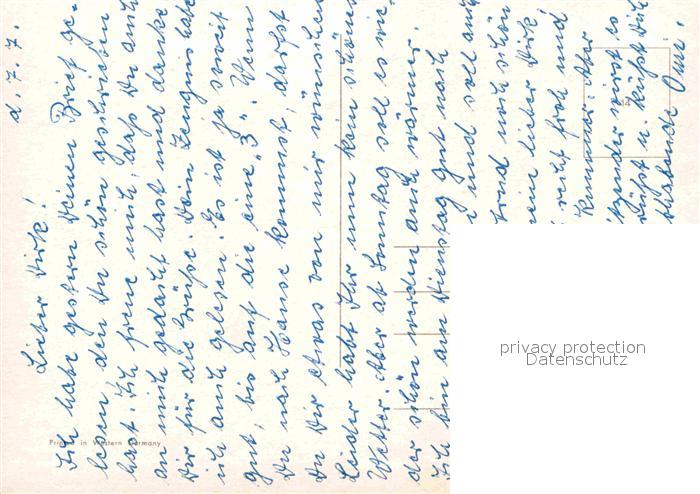 d. 7. 7.
Lieber Dirk!
Ich habe gestern Deinen Brief ge-
lesen den Du schön geschrieben
hast. Ich freue mich, daß Du auch
an mich gedacht hast und danke
Dir für die Grüße. Dein Zeugnis habe
ich auch gelesen. Es ist ja soweit
gut, bis auf die eine „3". Wenn
Du nach Hause kommst, darfst
Du Dir etwas von mir wünschen
Leider habt Ihr nun kein schönes
Wetter. Aber ab Sonntag soll es wie-
der schön werden auch wärmer.
Ich bin am Dienstag gut nach
und soll auch
und mich schon
mein lieber Dirk!
recht froh und
Kummer. Aber
wirst es
Grüßt u. küßt Dich
Omi.
Printed in Western Germany
privacy protection
Datenschutz